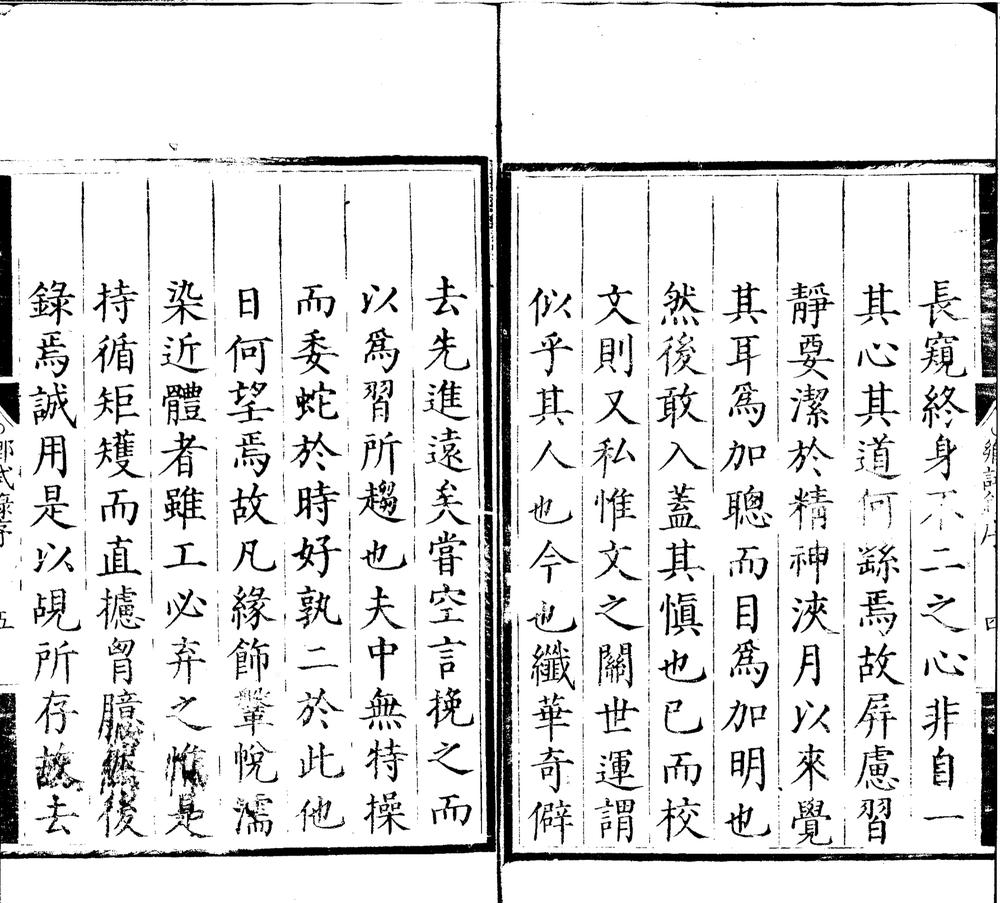 長窺終身不二之心非自一
其心其道何繇焉故屛慮習
靜要潔於精神浹月以來覺
其耳爲加聰而目爲加明也
然後敢入蓋其愼也已而校
文則又私惟文之關世運謂
似乎其人也今也纖華奇僻
鄕試錄序
四
去先進遠矣嘗空言挽之而
以爲習所趨也夫中無特操
而委蛇於時好孰二於此他
日何望焉故凡緣飾鞶帨濡
染近體者雖工必弃之惟是
持循矩矱而直攄胷臆然後
錄焉誠用是以覘所存故去
鄕試錄序
五